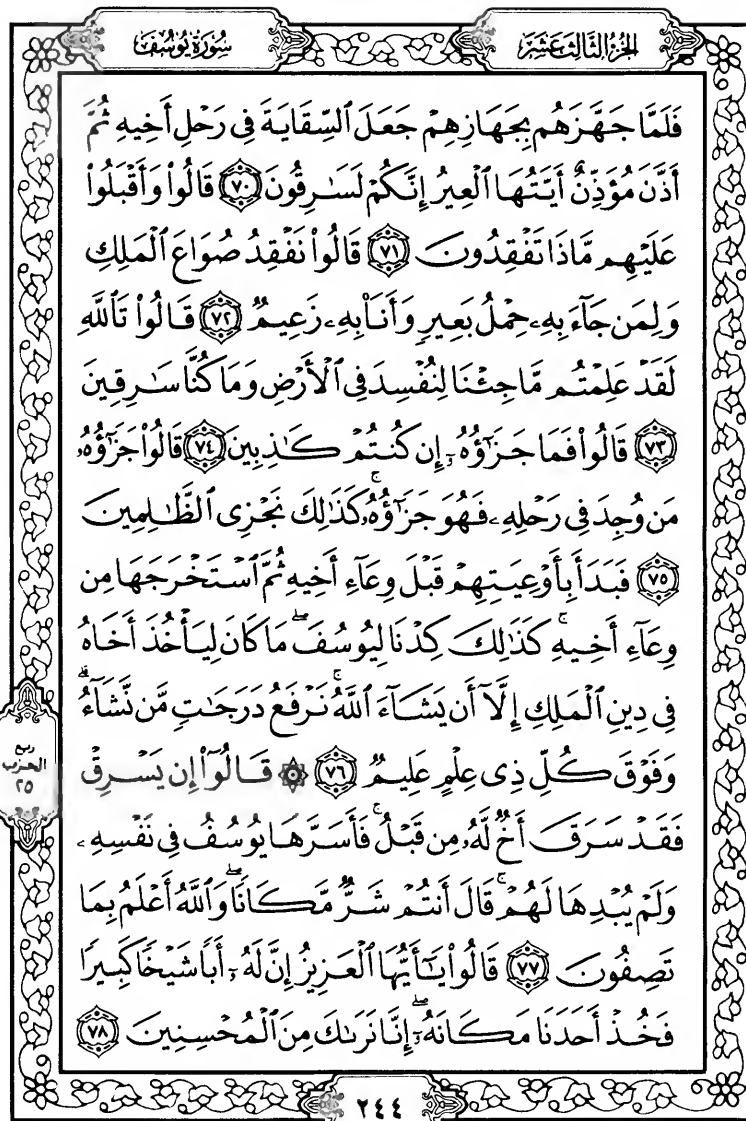 الجزء الثالث عشر
سورة يوسف
فَلَمَّا جَهَّزَهُم بِجَهَازِهِمْ جَعَلَ ٱلسِّقَايَةَ فِى رَحْلِ أَخِيهِ ثُمَّ
أَذَّنَ مُؤَذِّنٌ أَيَّتُهَا ٱلْعِيرُ إِنَّكُمْ لَسَـٰرِقُونَ ٧٠ قَالُوا۟ وَأَقْبَلُوا۟
عَلَيْهِم مَّاذَا تَفْقِدُونَ ٧١ قَالُوا۟ نَفْقِدُ صُوَاعَ ٱلْمَلِكِ
وَلِمَن جَآءَ بِهِۦ حِمْلُ بَعِيرٍ وَأَنَا۠ بِهِۦ زَعِيمٌ ٧٢ قَالُوا۟ تَٱللَّهِ
لَقَدْ عَلِمْتُم مَّا جِئْنَا لِنُفْسِدَ فِى ٱلْأَرْضِ وَمَا كُنَّا سَـٰرِقِينَ
٧٣ قَالُوا۟ فَمَا جَزَٰٓؤُهُۥٓ إِن كُنتُمْ كَـٰذِبِينَ ٧٤ قَالُوا۟ جَزَٰٓؤُهُۥ
مَن وُجِدَ فِى رَحْلِهِۦ فَهُوَ جَزَٰٓؤُهُۥ ۚ كَذَٰلِكَ نَجْزِى ٱلظَّـٰلِمِينَ
٧٥ فَبَدَأَ بِأَوْعِيَتِهِمْ قَبْلَ وِعَآءِ أَخِيهِ ثُمَّ ٱسْتَخْرَجَهَا مِن
وِعَآءِ أَخِيهِ ۚ كَذَٰلِكَ كِدْنَا لِيُوسُفَ ۖ مَا كَانَ لِيَأْخُذَ أَخَاهُ
فِى دِينِ ٱلْمَلِكِ إِلَّآ أَن يَشَآءَ ٱللَّهُ ۚ نَرْفَعُ دَرَجَـٰتٍ مَّن نَّشَآءُ ۗ
وَفَوْقَ كُلِّ ذِى عِلْمٍ عَلِيمٌ ٧٦ ۞ قَالُوٓا۟ إِن يَسْرِقْ
فَقَدْ سَرَقَ أَخٌ لَّهُۥ مِن قَبْلُ ۚ فَأَسَرَّهَا يُوسُفُ فِى نَفْسِهِۦ
وَلَمْ يُبْدِهَا لَهُمْ ۚ قَالَ أَنتُمْ شَرٌّ مَّكَانًا ۖ وَٱللَّهُ أَعْلَمُ بِمَا
تَصِفُونَ ٧٧ قَالُوا۟ يَـٰٓأَيُّهَا ٱلْعَزِيزُ إِنَّ لَهُۥٓ أَبًا شَيْخًا كَبِيرًا
فَخُذْ أَحَدَنَا مَكَانَهُۥٓ ۖ إِنَّا نَرَىٰكَ مِنَ ٱلْمُحْسِنِينَ ٧٨
ربع
الحزب
٢٥
٢٤٤